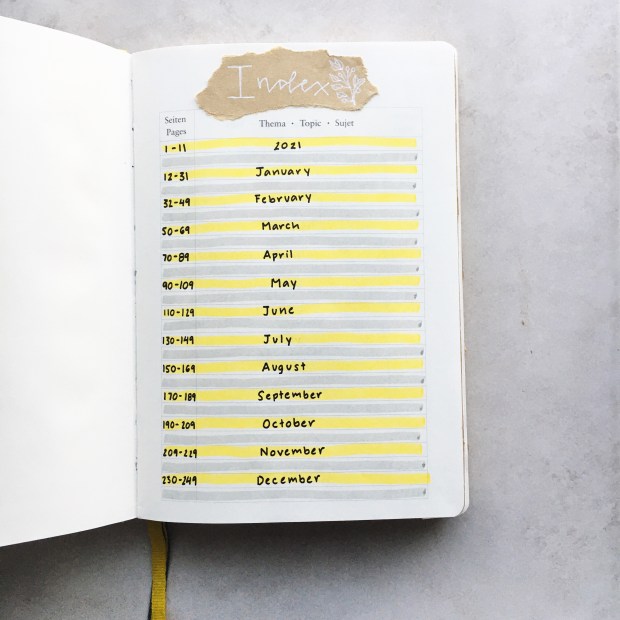 Index
Seiten
Pages
Thema · Topic · Sujet
1-11 2021
12-31 January
32-49 February
50-69 March
70-89 April
90-109 May
110-129 June
130-149 July
150-169 August
170-189 September
190-209 October
209-229 November
230-249 December